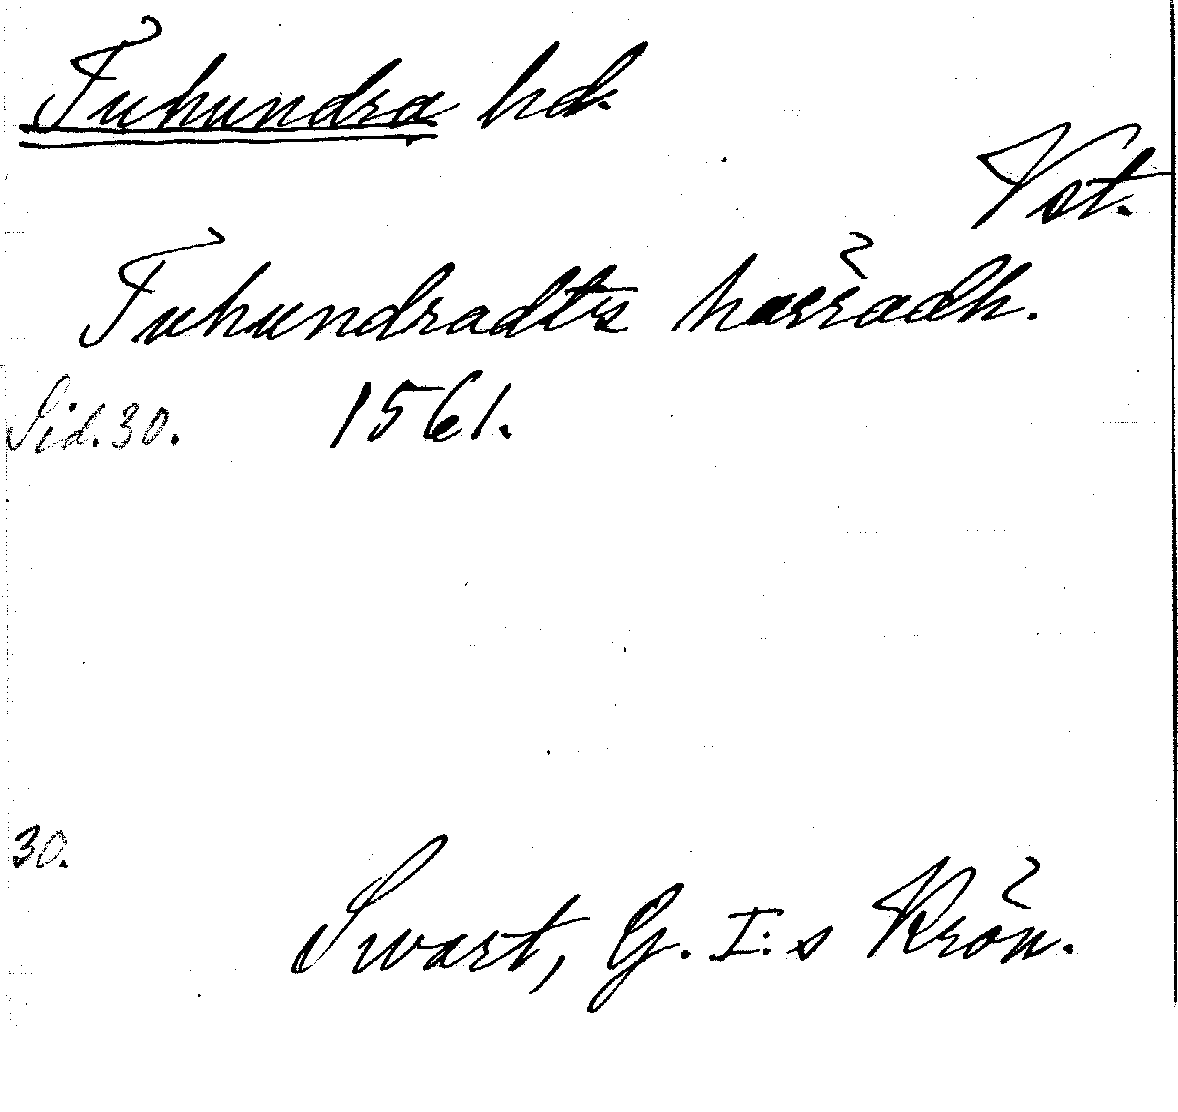 Tuhundra hd.
Vst.
Tuhundradts häradh.
Sid. 30. 1561.
30.
Swart, G. I:s Krön.